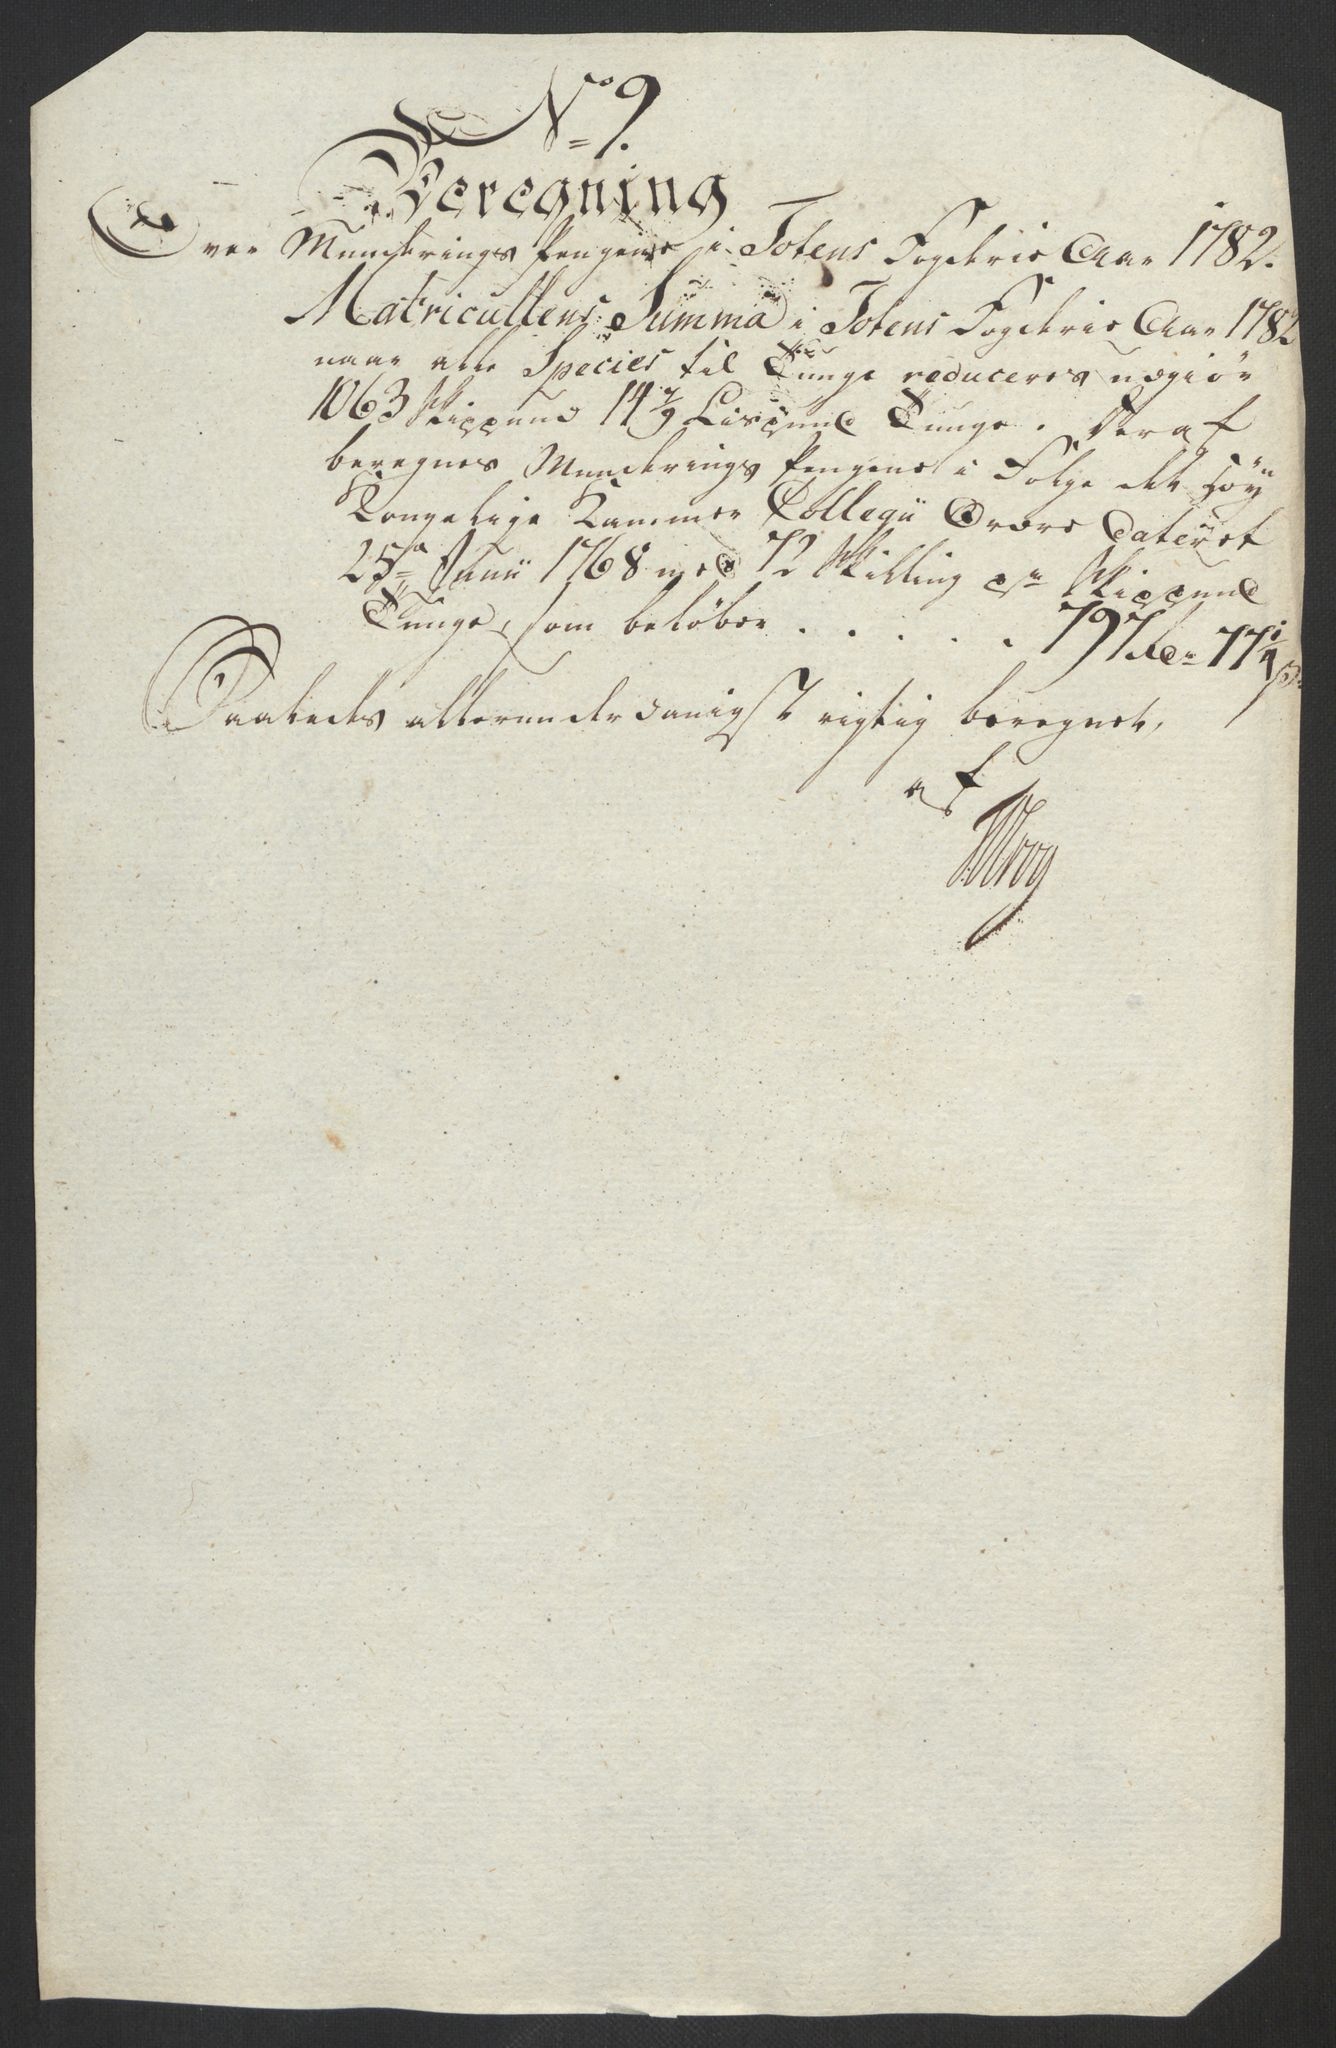 No 9.
Beregning
Over Munderings Pengene i Totens Fogderie Aar 1782.
Matricullens Summa i Totens Fogderie Aar 1782
naar alle Species til Tunge reduceres udgiør
1063 Skippund 14 7/9 Lispund Tunge. Deraf
beregnes Munderings Pengene i Følge det høy
Kongelige Kammer Collegii Ordre dateret
25de Junii 1768 med 72 Skilling pr Skippund
Tunge, som beløber . . . . . 797 Rdr 77 1/4 s.
Saaledes allerunderdanigst rigtig beregnet,
af